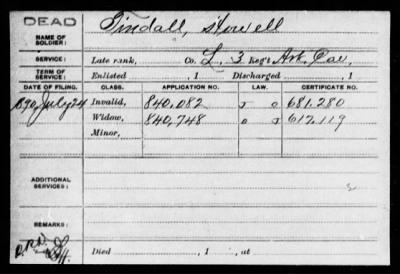 DEAD
NAME OF SOLDIER: Tindall, Stowell
SERVICE: Late rank, Co. L, 3 Reg't Ark. Cav.
TERM OF SERVICE: Enlisted , 1 Discharged , 1
DATE OF FILING. CLASS. APPLICATION NO. LAW. CERTIFICATE NO.
1890, July 24 Invalid, 840,082 681,280
Widow, 840,748 617,119
Minor,
ADDITIONAL SERVICES:
REMARKS:
Died , 1 , at